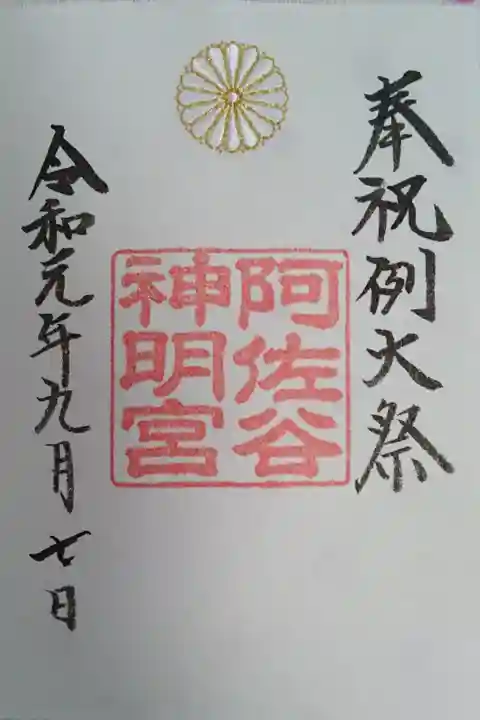 奉祝例大祭
阿佐谷
神明宮
令和元年九月七日